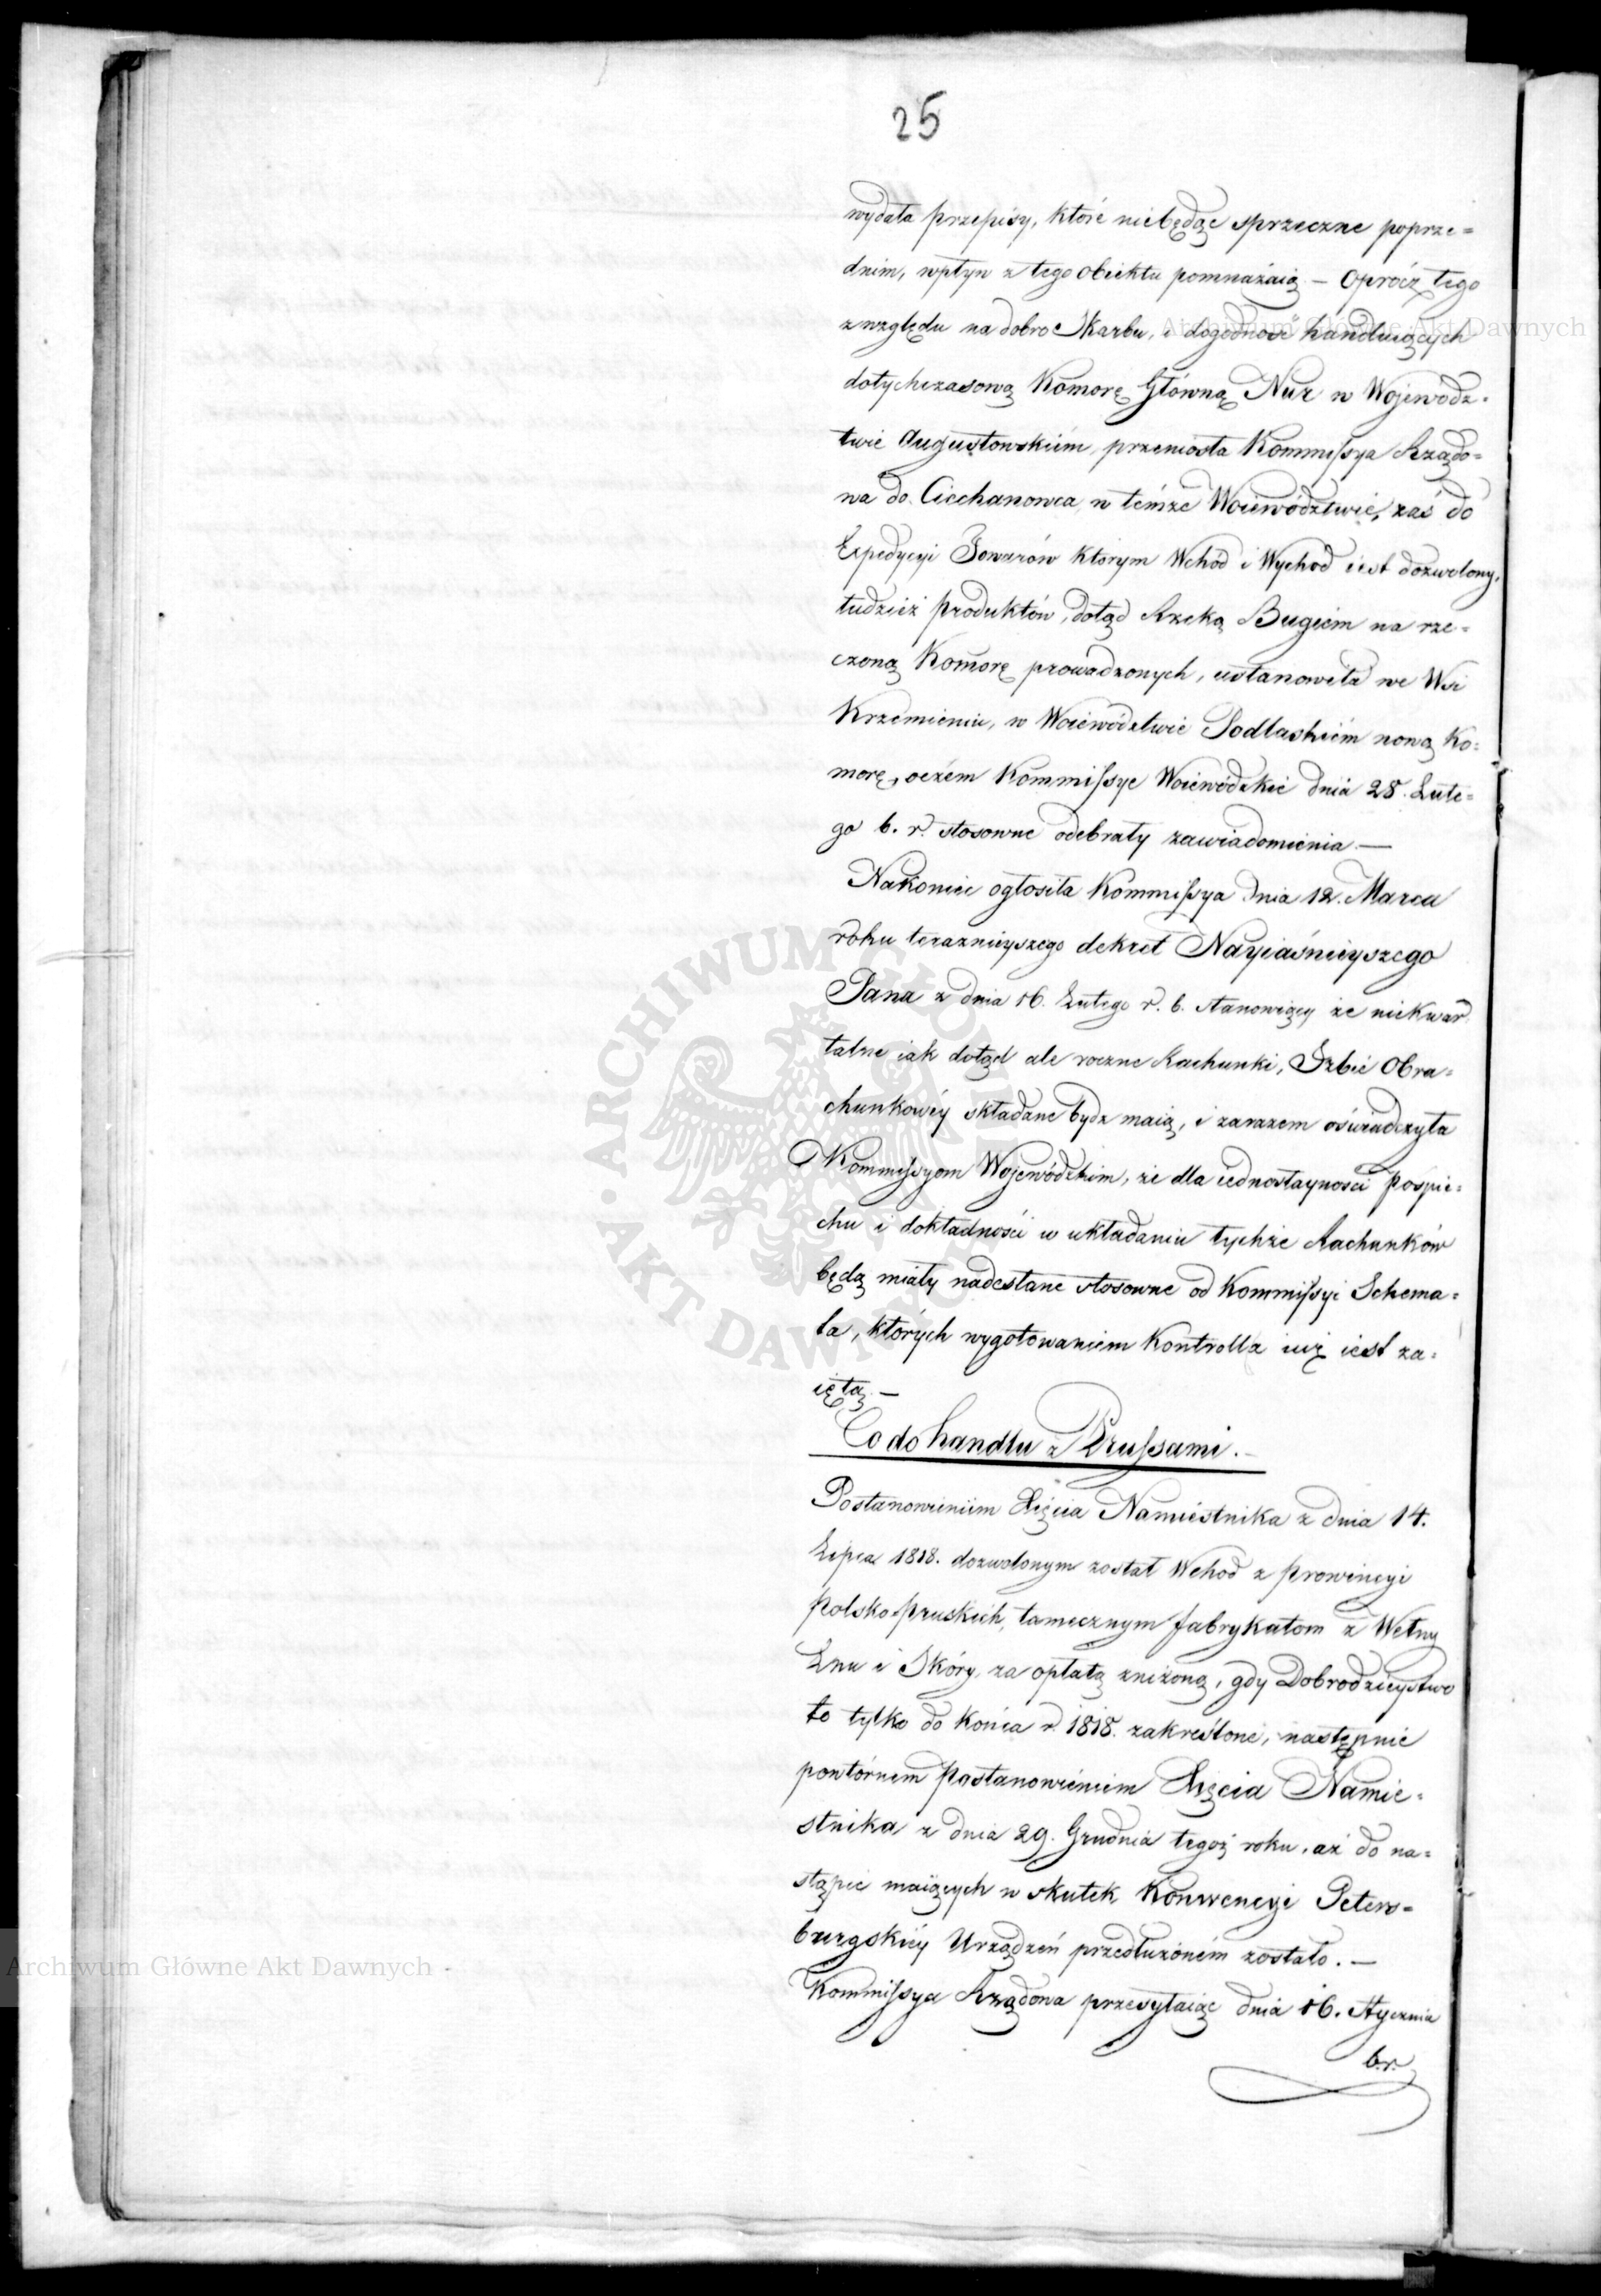 25
wydała przepisy, które niebędąc sprzeczne poprze=
dnim, wpływ z tego obiektu pomnażaią — Oprócz tego
z względu na dobro Skarbu, i dogodność handluiących
dotychczasową Komorę Główną Nur w Wojewódz=
twie Augustowskiém przeniosła Kommissya Rządo=
wa do Ciechanowca w témże Woiewództwie, zaś do
Expedycyi Towarów którym Wchód i Wychod iest dozwolony,
tudzież produktów, dotąd Rzeką Bugiem na rze=
czoną Komorę prowadzonych, ustanowiła we Wsi
Krzemieniu, w Woiewództwie Podlaskiém nową Ko=
morę, oczém Kommissye Woiewódzkie dnia 28. Lute=
go b. r. stosowne odebrały zawiadomienia —
Nakoniec ogłosiła Kommissya dnia 12. Marca
roku teraznieyszego dekret Nayiaśnieyszego
Pana z dnia 16. Lutego r. b. stanowiący że niekwar
talne iak dotąd ale roczne Rachunki, Izbie Obra=
chunkowéy składane bydz maią, i zarazem oświadczyła
Kommissyom Wojewódzkim, że dla iednostayności pospie=
chu i dokładności w układaniu tychże Rachunków
będą miały nadesłane stosowne od Kommissyi Schema=
ta, których wygotowaniem Kontrolla iuż iest za=
iętą. —
Co do handlu z Prussami. —
Postanowieniem Xięcia Namiestnika z dnia 14.
Lipca 1818. dozwolonym został Wchod z prowincyi
Polsko pruskich, tamecznym fabrykatom z Wełny
Lnu i Skóry, za opłatą zniżoną, gdy Dobrodzieystwo
to tylko do końca r. 1818. zakreślone, następnie
powtórnem postanowieniem Xięcia Namie=
stnika z dnia 29. Grudnia tegoż roku, aż do na=
stąpić maiących w skutek Konwencyi Peters=
burgskiéy Urządzeń przedłużoném zostało. —
Kommissya Rządowa przesyłaiąc dnia 16. Stycznia
b.r.
Archiwum Główne Akt Dawnych
Archiwum Główne Akt Dawnych
ARCHIWUM GŁÓWNE AKT DAWNYCH